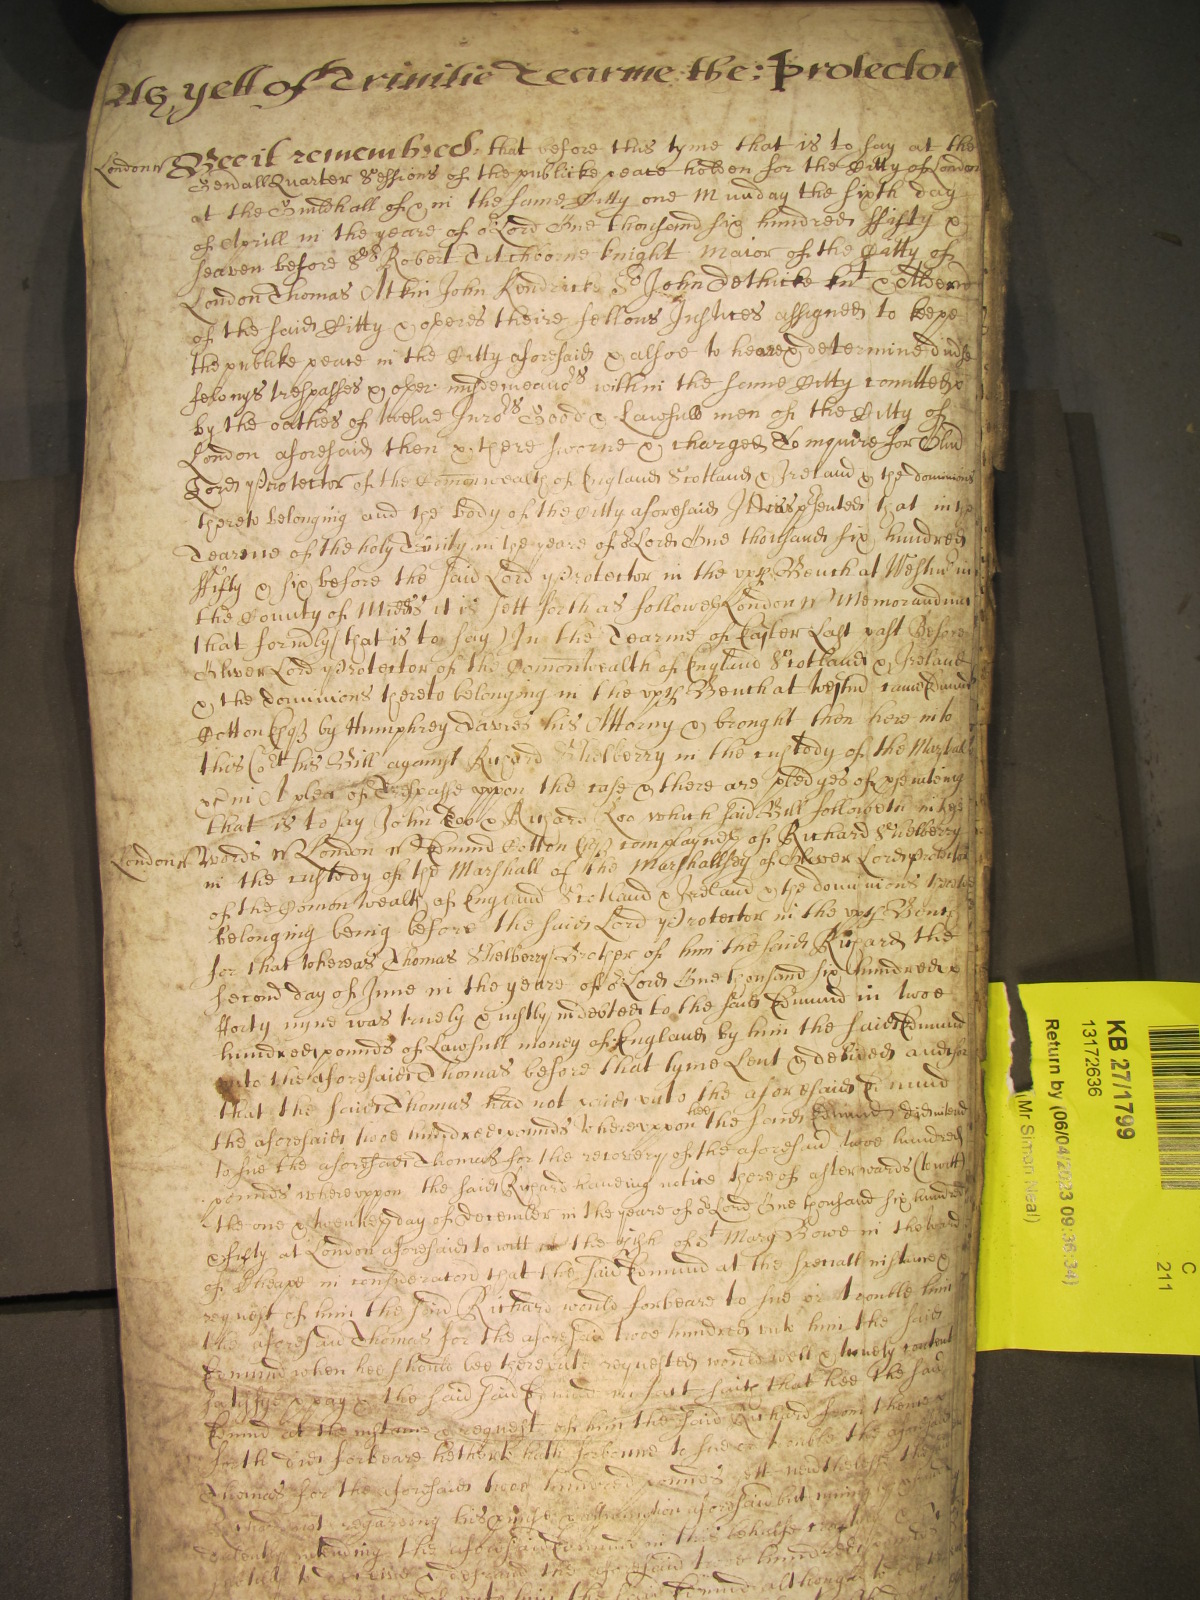 As yett of Trinitie Tearme the: Protector
London ss Bee it remembred that before this tyme that is to say at the
Genall Quarter Sessions of the publicke peace holden for the Citty of London
at the Guildhall of & in the same Citty one Munday the sixth day
of Aprill in the yeare of or Lord One thousand six hundred ffifty &
seaven before Sr Robert Titchborne knight Maior of the Citty of
London Thomas Atkin John Kendricke Sr John Dethicke knt & Alderm
of the said Citty & others theire fellows Justices assigned to keepe
the publike peace in the Citty aforesaid & alsoe to heare & determine divse
felonys trespasses & other misdemeanors within the same Citty comitted
by the oathes of twelve Jurors Good & Lawfull men of the Citty of
London aforesaid then & there sworne & charged to inquire for Oliver
Lord Protector of the Comonwealth of England Scotland & Ireland & the dominions
thereto belonging and the body of the Citty aforesaid It is psented that in the
Tearme of the holy Trinity in the yeare of or Lord One thousand six hundred
ffifty & six before the said Lord Protector in the upp Bench at Westmr in
the County of Midds it is sett forth as followeth London ss Memorandum
that formerly (that is to say) In the Tearme of Easter Last past Before
Oliver Lord Protector of the Comonwealth of England Scotland & Ireland
& the dominions thereto belonging in the upp Bench at Westmr came Edmund
Cotton Esqr by Humphrey Davies his Attorny & brought then here into
this Cort his Bill against Richard Shelberry in the custody of the Marshall
&c in A plea of Trespasse uppon the case & there are pledges of psecuting
that is to say John Doo & Richard Roo which said Bill followeth in these
London ss Words ss London ss Edmund Cotton Esqr complaynes of Richard Shelberry
in the custody of the Marshall of the Marshallsey of Oliver Lord Protector
of the Comon Wealth of England Scotland & Ireland & the dominions thereto
belonging being before the said Lord Protector in the upp Bench
for that whereas Thomas Shelberry Brother of him the said Richard the
second day of June in the yeare of or Lord One thousand six hundred &
fforty nyne was truely & justly indebted to the said Edmund in twoe
hundred pounds of Lawfull money of England by him the said Edmund
unto the aforesaid Thomas before that tyme Lent & delived and for
that the said Thomas had not paid unto the aforesaid Edmund
the aforesaid twoe hundred pounds Whereuppon hee the said Edmund did intend
to sue the aforesaid Thomas for the recovery of the aforesaid twoe hundred
pounds whereuppon the said Richard haveing notice thereof afterwards (to witt)
the one & twentyeth day of December in the yeare of or Lord One thousand six hundred
& fifty at London aforesaid to witt in the pish of St Mary Bowe in the ward
of Cheape in consideracon that the said Edmund at the speciall instance &
request of him the said Richard would forbeare to sue or trouble him
the aforesaid Thomas for the aforesaid twoe hundred unto him the said
Edmund when hee should bee thereunto requested would well & truely content
satisfye & pay & the said said Edmund in fact saith that hee the said
Edmund at the instance & request of him the said Richard from thence
forth did forbeare hetherto hath forborne to sue or trouble the aforesaid
Thomas for the aforesaid twoe hundred pounds yett neverthelesse the
not regarding his pmise & assumption aforesaid but
intending the aforesaid Edmund in this behalfe
to deceive & defraud the aforesaid twoe hundred
unto him the said Edmund although
KB 27/1799
13172636
Return by (06/04/2023 09:36:34)
(Mr Simon Neal)
C
211